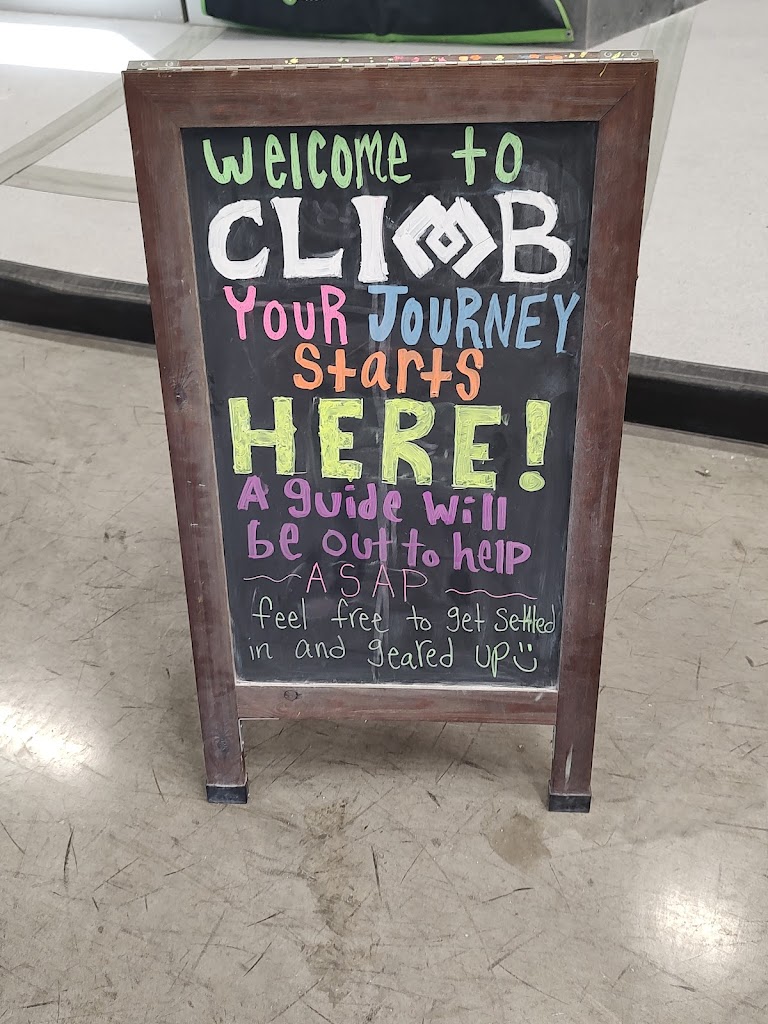 Welcome to
CLIMB
YOUR JOURNEY
starts
HERE!
A guide will
be out to help
~ASAP~
feel free to get settled
in and geared up